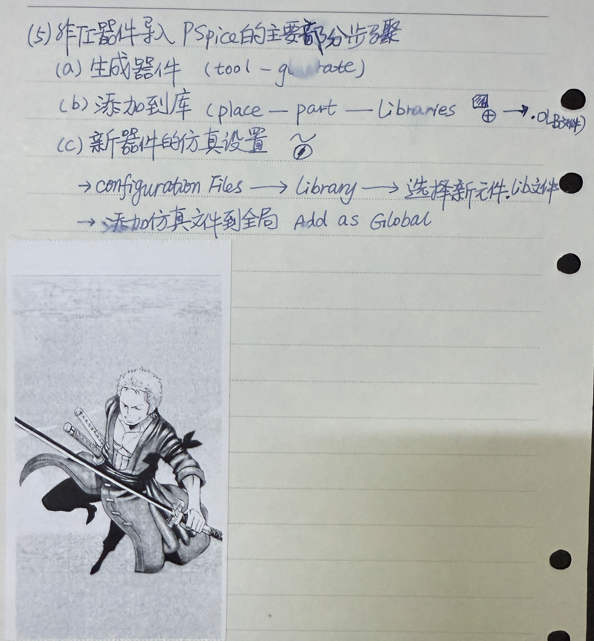 (5) 将TI器件导入PSpice的主要部分步骤
(a) 生成器件 (tool - generate)
(b) 添加到库 (place — part — Libraries → .OLB文件)
(c) 新器件的仿真设置
→ configuration Files → Library → 选择新元件.lib文件
→ 添加仿真文件到全局 Add as Global